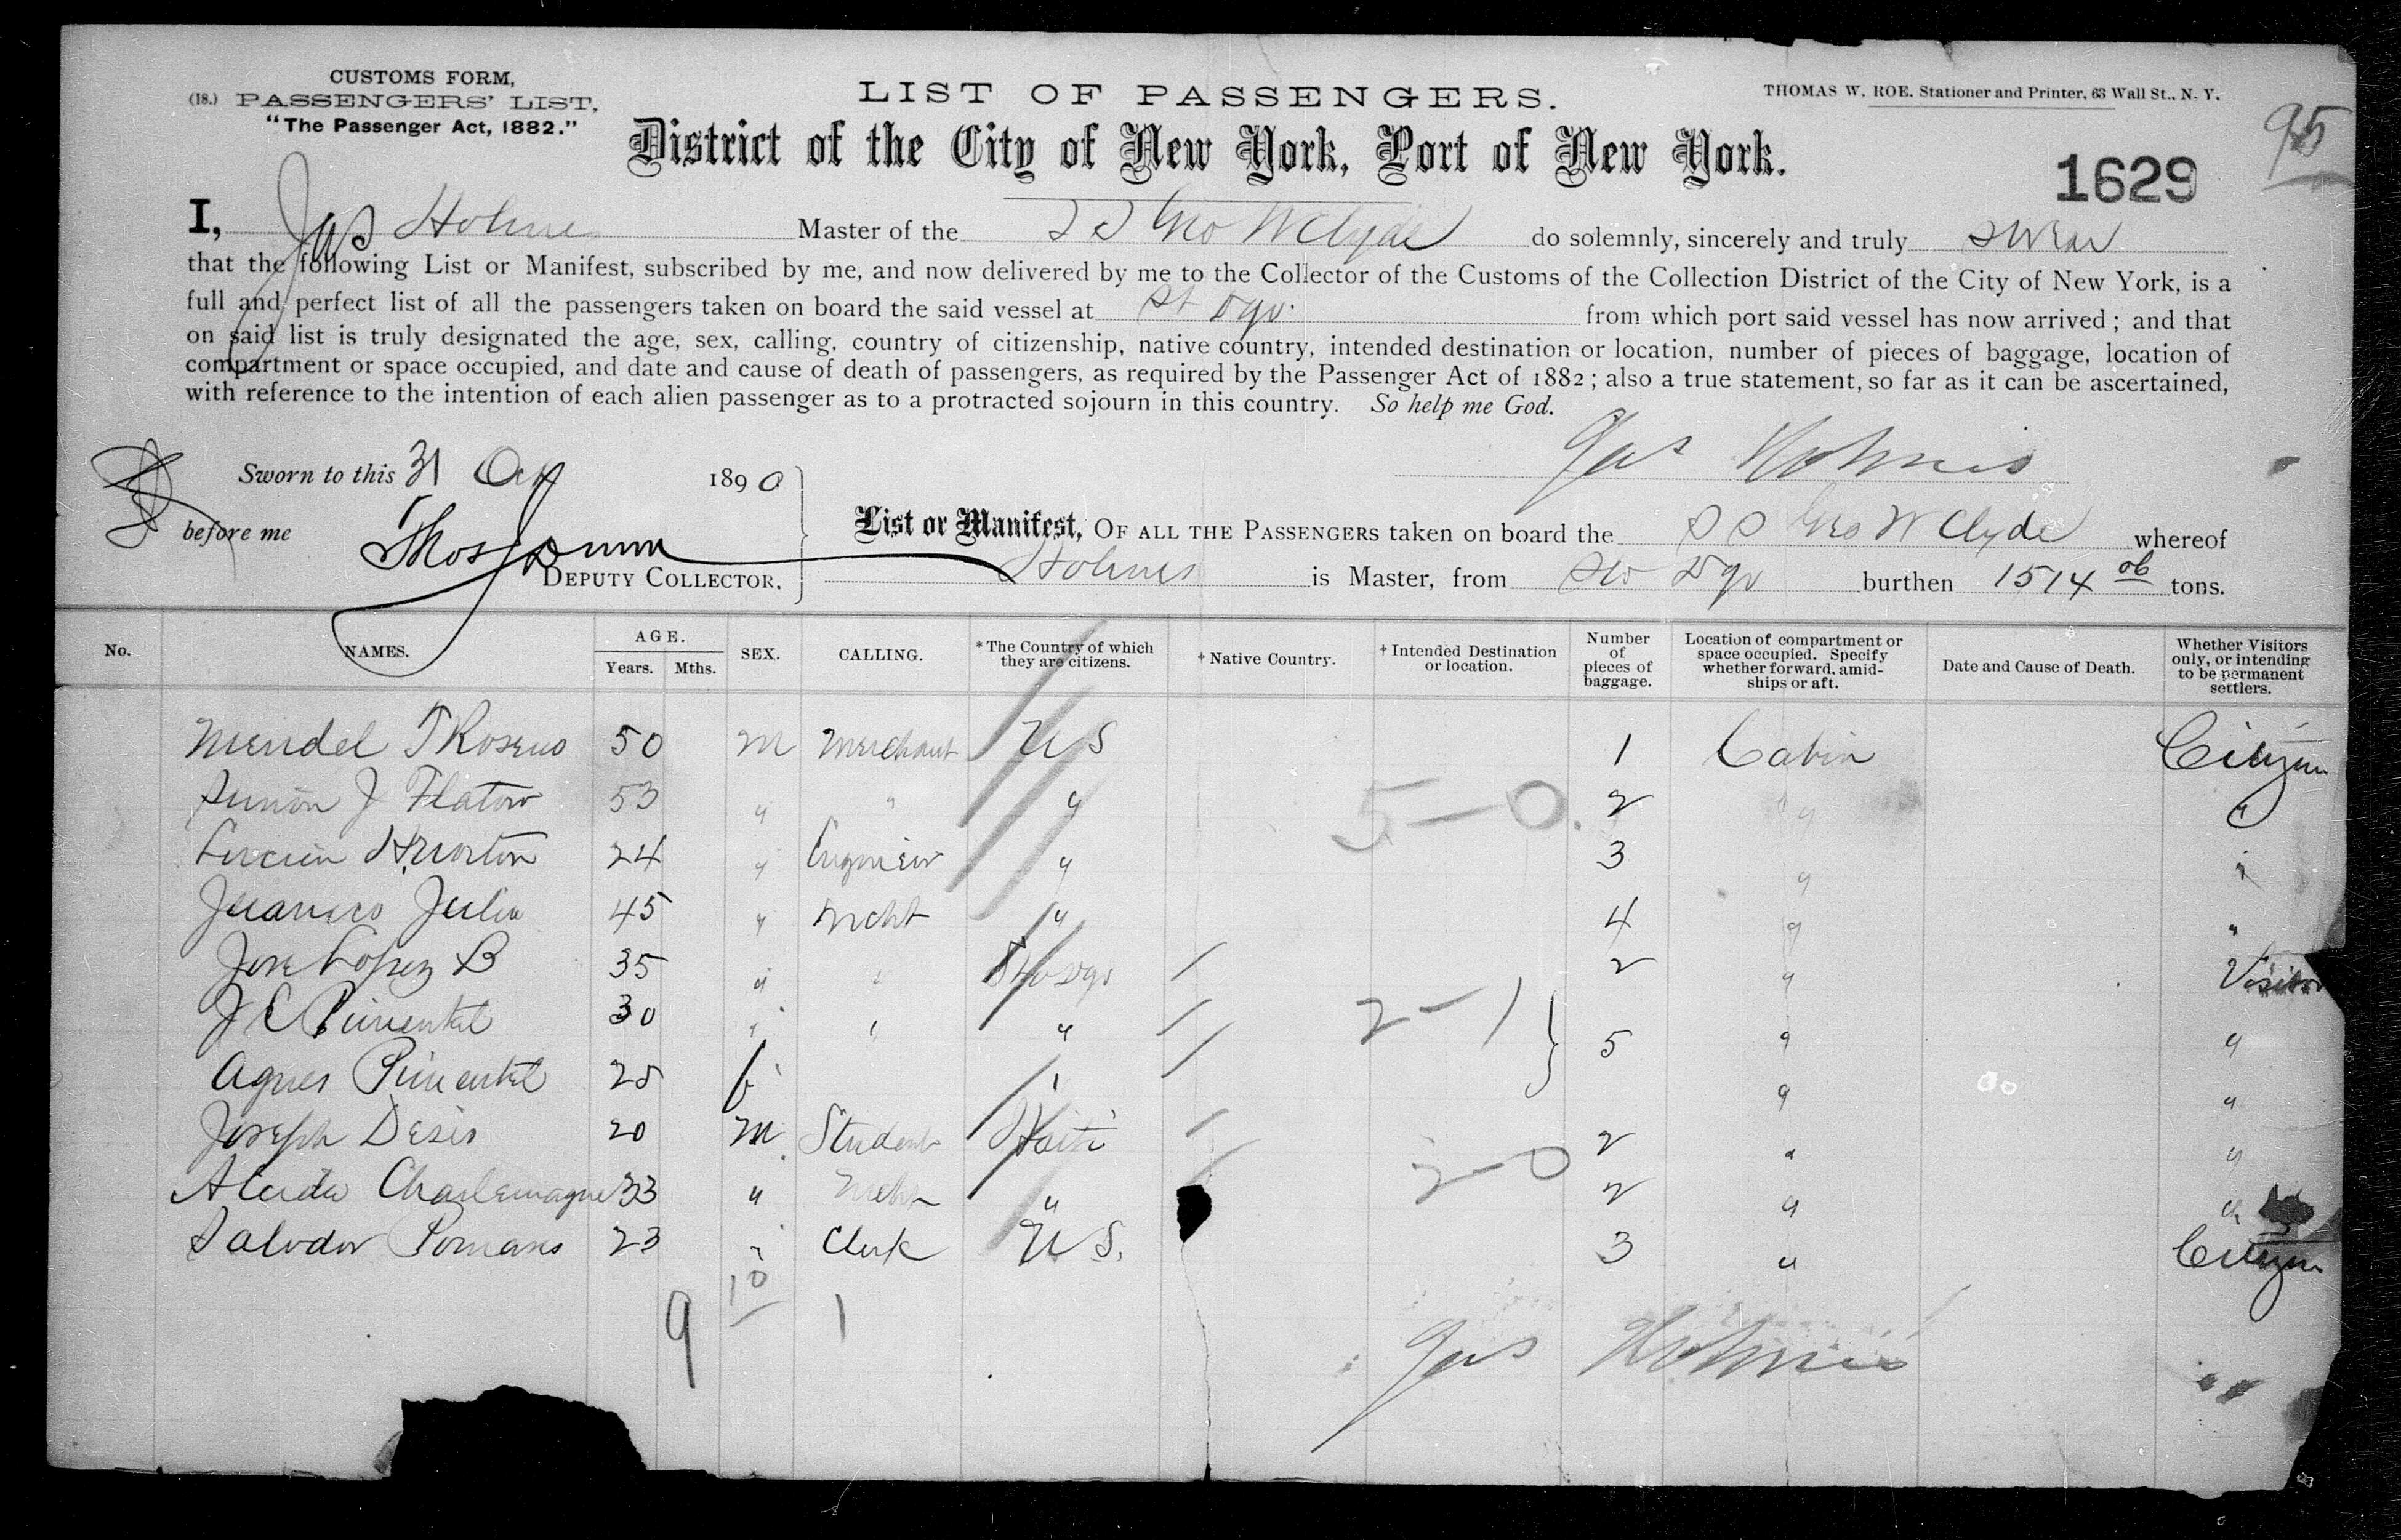 CUSTOMS FORM,
(18.) PASSENGERS' LIST,
"The Passenger Act, 1882."
LIST OF PASSENGERS.
THOMAS W. ROE, Stationer and Printer, 63 Wall St., N. Y.
95
District of the City of New York, Port of New York.
1629
I, Jas Holmes Master of the SS Geo W Clyde do solemnly, sincerely and truly swear
that the following List or Manifest, subscribed by me, and now delivered by me to the Collector of the Customs of the Collection District of the City of New York, is a
full and perfect list of all the passengers taken on board the said vessel at St Dgo. from which port said vessel has now arrived; and that
on said list is truly designated the age, sex, calling, country of citizenship, native country, intended destination or location, number of pieces of baggage, location of
compartment or space occupied, and date and cause of death of passengers, as required by the Passenger Act of 1882; also a true statement, so far as it can be ascertained,
with reference to the intention of each alien passenger as to a protracted sojourn in this country. So help me God.
Jas Holmes
Sworn to this 31 1890
before me Thos
DEPUTY COLLECTOR.
List or Manifest, OF ALL THE PASSENGERS taken on board the SS Geo W Clyde whereof
Holmes is Master, from Sto Dgo burthen 1514 06 tons.
No. NAMES. AGE. Years. Mths. SEX. CALLING. * The Country of which they are citizens. † Native Country. † Intended Destination or location. Number of pieces of baggage. Location of compartment or space occupied. Specify whether forward, amidships or aft. Date and Cause of Death. Whether Visitors only, or intending to be permanent settlers.
Mendel 50 M Merchant US 1 Cabin Citizen
J Flatow 53 " " " 2 " "
24 " Engineer " 3 " "
Julia 45 " Mcht " 4 " "
Jose Lopez B 35 " " Sto Dgo 2 " Visitor
J E Pimentel 30 " " " 2-1 } 5 " "
Agnes Pimentel 25 f " " "
Joseph Desir 20 M Student Haiti 2 " "
Charlemagne 33 " Mcht " 2-0 2 " "
Salvador 23 " Clerk U S. 3 " Citizen
5-0.
10
9 1
Jas Holmes